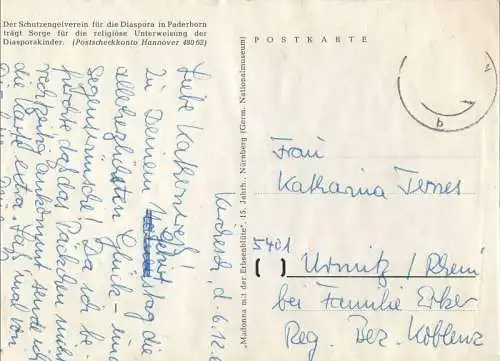 Der Schutzengelverein für die Diaspora in Paderborn
trägt Sorge für die religiöse Unterweisung der
Diasporakinder. (Postscheckkonto Hannover 480 62)
POSTKARTE
"Madonna mit der Erbsenblüte", 15. Jahrh., Nürnberg (Germ. Nationalmuseum)
d. 6.12.
Liebe Katharina!
Zu Deinem
Geburtstag die
allerherzlichsten Glück- und
Segenswünsche! Da ich be-
fürchte das das Päckchen nicht
rechtzeitig ankommt sende ich
die Karte extra. Laß mal von
b
Frau
Katharina Ternes
5401
Urmitz / Rhein
bei Familie Erker
Reg. Bez. Koblenz